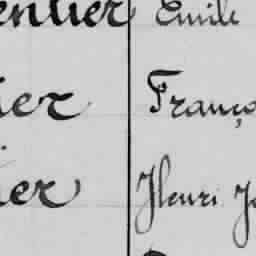 entier Emile
ier Franço
ier Henri J